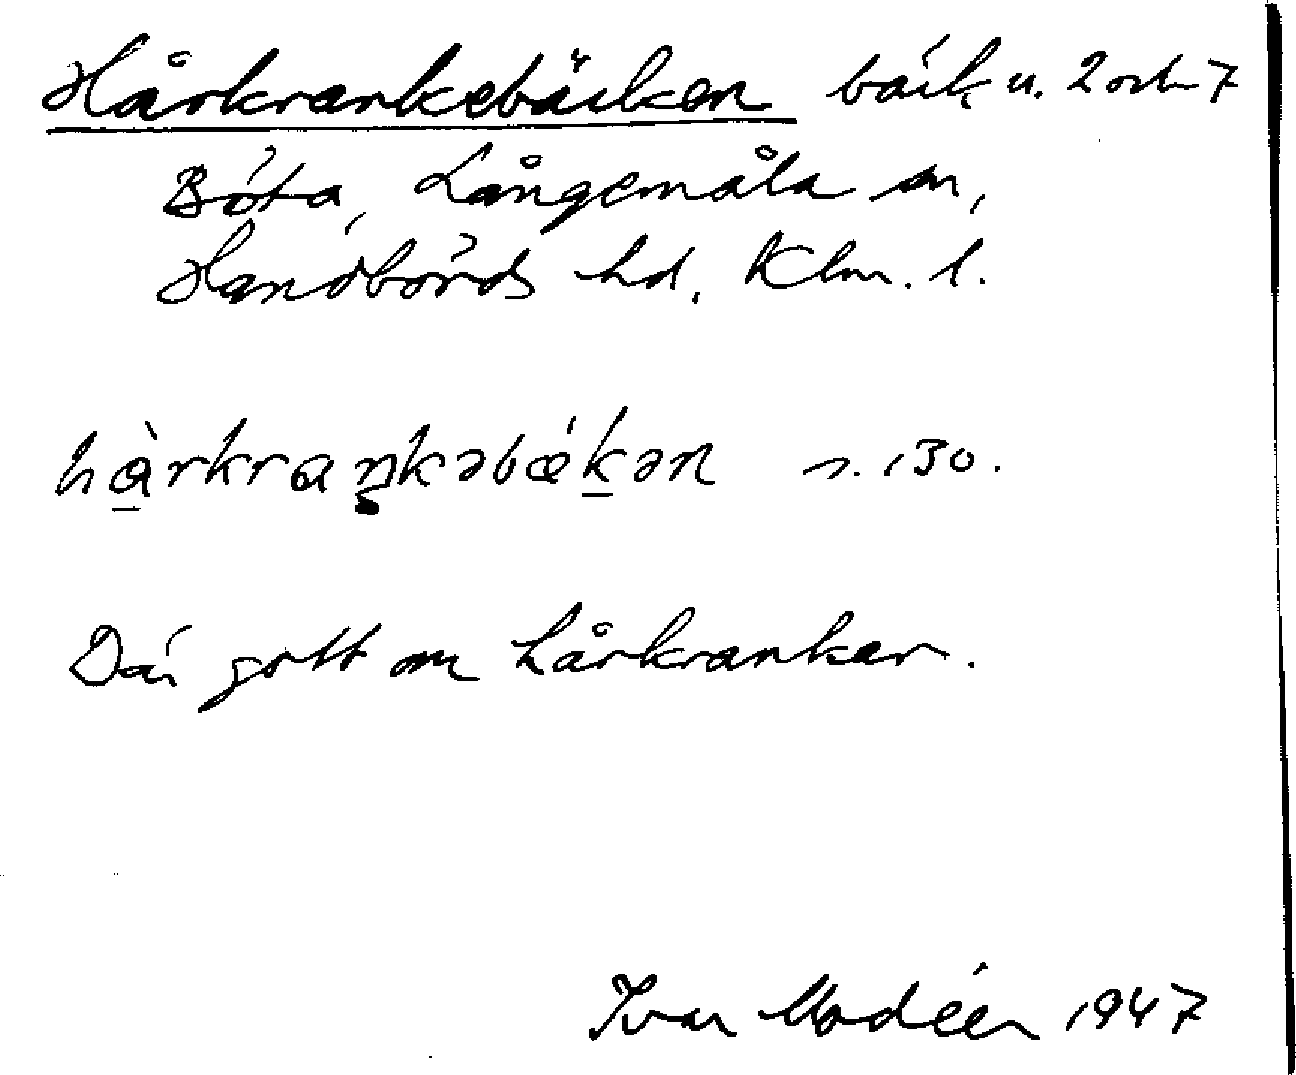 Hårkrankebäcken bäck u. 2 och 7
Böta, Långemåla sn,
Handbörds hd, Klm. l.
hàrkraŋkəbǽkən s. 130.
Där gott om hårkrankar.
Ivar Modéer 1947